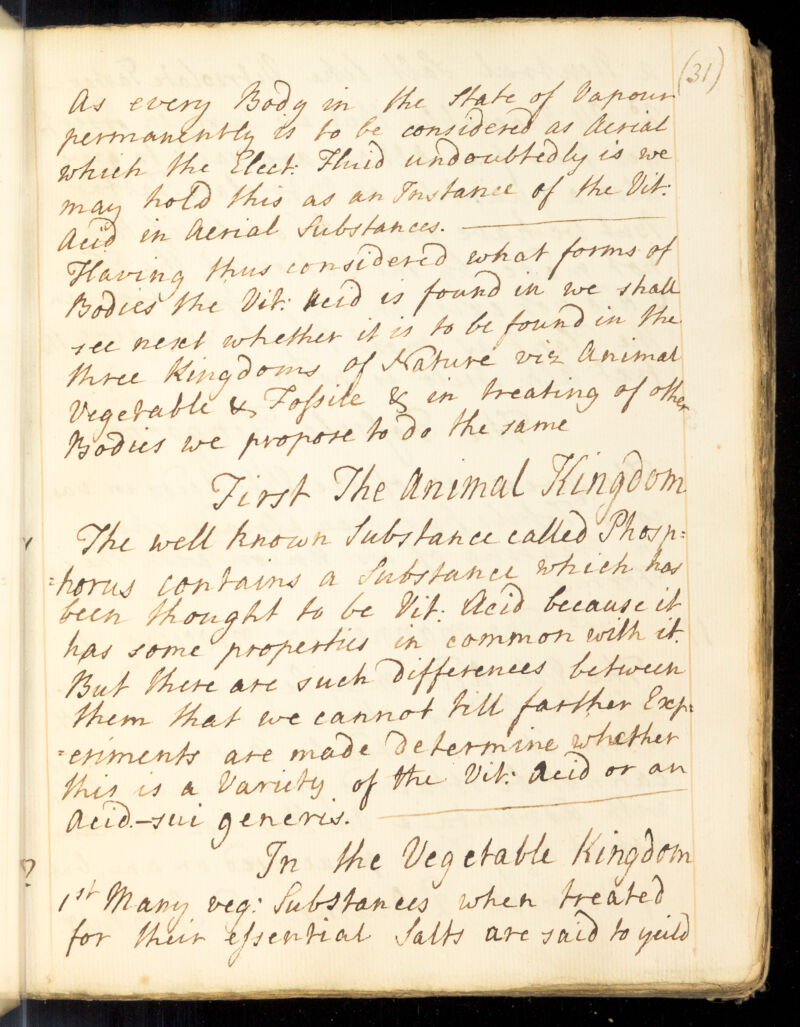 (31)
As every Body in the State of Vapour
permanently is to be considered as Aerial
which the Elect: Fluid undoubtedly is we
may hold this as an Instance of the Vit:
Acid in Aerial Substances.
Having thus considered what forms of
Bodies the Vit: Acid is found in we shall
see next whether it is to be found in the
three Kingdoms of Nature viz Animal
Vegetable & Fossile & in treating of other
Bodies we propose to do the same
First The Animal Kingdom
The well known Substance called Phosp:
=horus contains a Substance which has
been thought to be Vit: Acid because it
has some properties in common with it.
But there are such differences between
them that we cannot till farther Exp:
=eriments are made determine whether
this is a Variety of the Vit: Acid or an
Acid.-sui generis.
In the Vegetable Kingdom
1st Many veg: Substances when treated
for their essential Salts are said to yeild